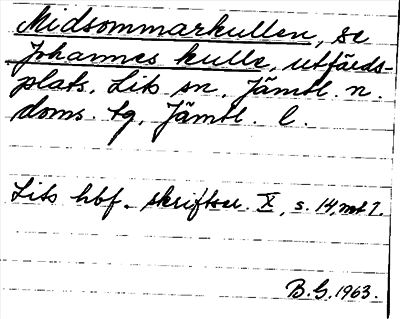 Midsommarkullen, se
Johannes kulle, utfärds-
plats. Lits sn, Jämtl. n.
doms. tg, Jämtl. l.
Lits hbf. skriftser. X, s. 14, not 7.
B.G. 1963.